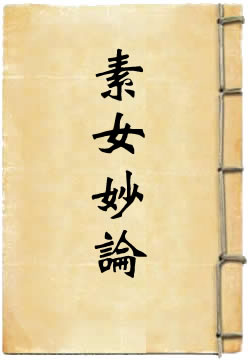 素女妙論